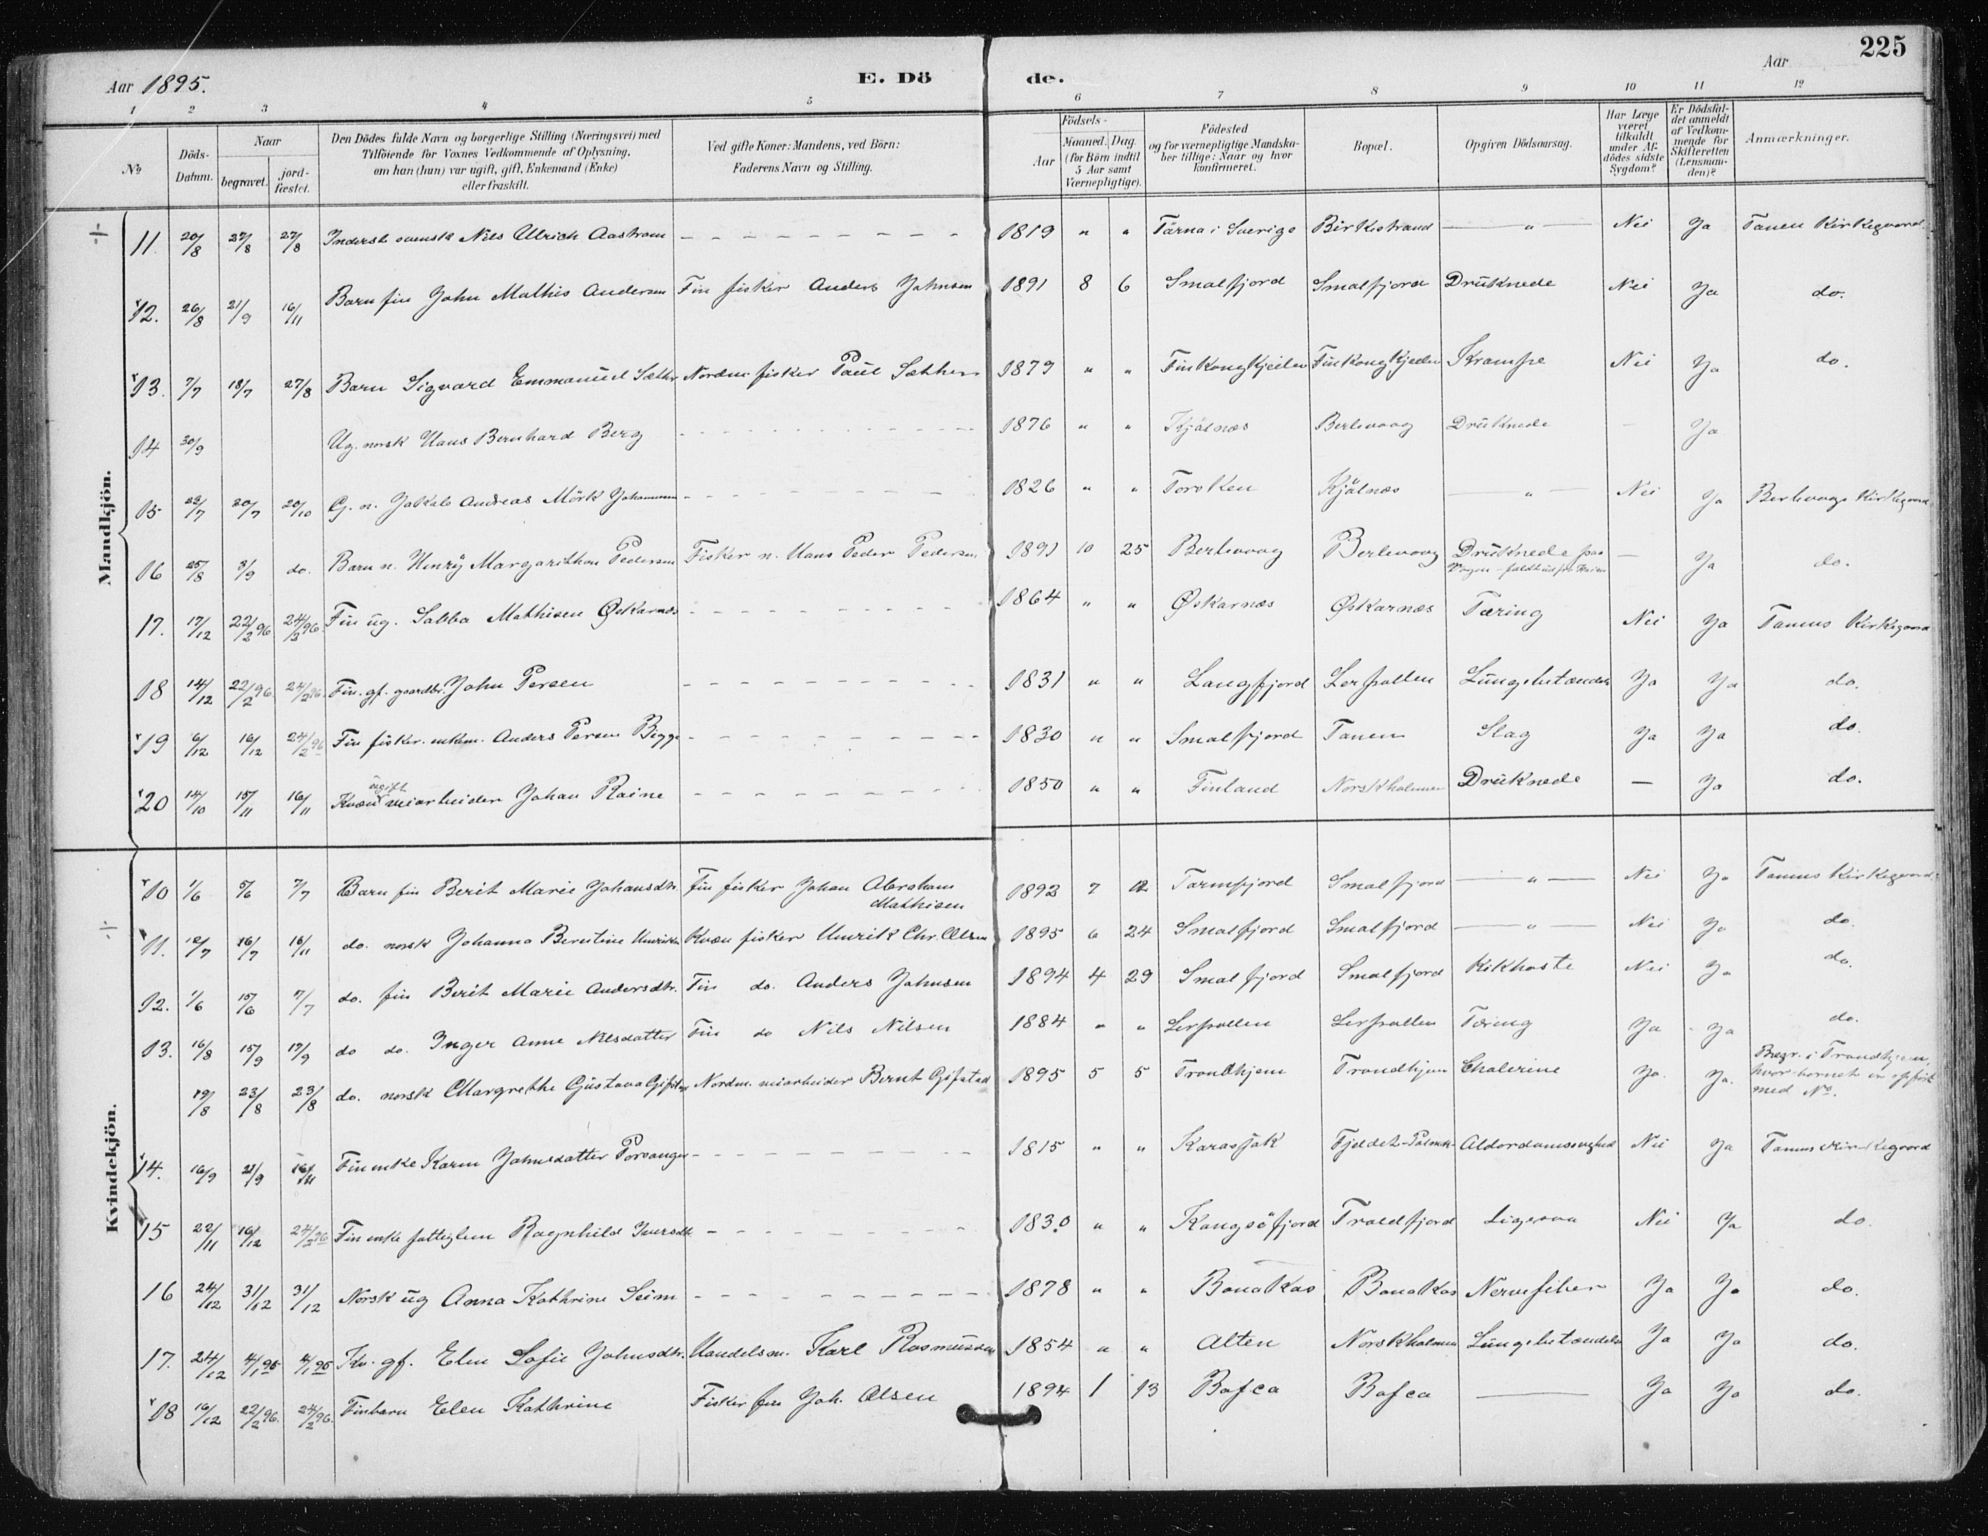 225
Aar 1895.
E. Dö de.
Aar
1 2 3 4 5 6 7 8 9 10 11 12
No
Döds-Datum.
Naar
begravet.
jord-fæstet.
Den Dödes fulde Navn og borgerlige Stilling (Næringsvei) med
Tilföiende for Voxnes Vedkommende af Oplysning,
om han (hun) var ugift, gift, Enkemand (Enke)
eller fraskilt.
Ved gifte Koner: Mandens, ved Börn:
Faderens Navn og Stilling.
Födsels-
Aar
Maaned. Dag.
(for Börn indtil
5 Aar samt
Værnepligtige).
Födested
og for værnepligtige Mandska-
ber tillige: Naar og hvor
konfirmeret.
Bopæl.
Opgiven Dödsaarsag.
Har Læge
været
tilkaldt
under Af-
dödes sidste
Sygdom?
Er Dödsfal-
det anmeldt
af Vedkom-
mende for
Skifteretten
(Lensman-
den)?
Anmærkninger.
Mandkjön.
11 20/8 27/8 27/8 Inderst svensk Nils Ullrich Aastrom 1819 " " Tärna i Sverige Birkestrand — " — Nei Ja Tanen Kirkegaard
12. 26/8 21/9 16/11 Barn fin John Mathis Andersen Fin fisker Anders Johnsen 1891 8 6 Smalfjord Smalfjord Druknede Nei Ja do.
13. 7/7 18/7 27/8 Barn Sigvard Emmanuel Sæther Nordm. fisker Paul Sæther 1879 " " Finkongkjeilen Finkongkjeilen Krampe Nei Ja do.
14 30/9 Ug. norsk Hans Bernhard Berg 1876 " " Kjölnæs Berlevaag Druknede — Ja
15 22/7 20/7 20/10 G. n. Jakob Andreas Mörk Johannesen 1826 " " Torsken Kjölnæs — " — Nei Ja Berlevaags Kirkegaard
16 25/8 3/9 do. Barn n. Henry Margarithon Pedersen Fisker n. Hans Peder Pedersen 1891 10 25 Berlevaag Berlevaag Druknede paa Vaagen — Ja do.
17. 17/12 22/2 96 24/2 96. Fin ug. Sabba Mathisen Øskarnæs 1864 " " Øskarnæs Øskarnæs Tæring Nei Ja Tanens Kirkegaard
18 14/12 22/2 96 24/2 96. Fin. gf. gaardbr. John Persen 1831 " " Langfjord Lerpollen Lungebetændelse Ja Ja do.
19 6/12 16/12 24/2 96 Fin fisker. enkem. Anders Persen Bigge 1830 " " Smalfjord Tanen Slag Ja Ja do.
20 14/10 15/11 16/11 Kvæn ugift veiarbeider Johan Raine 1850 " " Finland Norskholmen Druknede — Ja do.
Kvindekjön.
10 1/6 5/6 7/7 Barn fin Berit Marie Johansdtr. Fin fisker Johan Abraham
Mathisen 1892 7 12 Tarmfjord Smalfjord — " — Nei Ja Tanens Kirkegaard
11. 12/7 16/7 16/11 do. norsk Johanna Berntine Henriksen Kvæn fisker Henrik Chr. Olsen 1895 6 24 Smalfjord Smalfjord — " — Nei Ja do.
12. 1/6 15/6 7/7 do. fin Berit Marie Andersdtr. Fin do. Anders Johnsen 1894 4 29 Smalfjord Smalfjord Kikhoste Nei Ja do.
13. 16/8 15/9 17/9 do do. Inger Anne Nilsdatter Fin do Nils Nilsen 1884 " " Lerpollen Lerpollen Tæring Ja Ja do.
19/8 23/8 23/8 do. norsk Margrethe Gustava Gifstad Nordm. veiarbeider Bernt Gifstad 1895 5 5 Trondhjem Trondhjem Cholerine Ja. Ja. Begr. i Trondhjem
hvor barnet er opført
med No.
14. 16/9 21/9 16/11 Fin enke Karen Johnsdatter Porsanger 1815 " " Karasjok Fjeldets-Polmak Alderdomssvaghed Nei Ja Tanens Kirkegaard
15 22/11 16/12 24/2 96 Fin enke fattiglem Ragnhild Iversdtr. 1830 " " Kongsöfjord Troldfjord Ligesaa Nei Ja do.
16 24/12 31/12 31/12 Norsk ug Anna Kathrine Seim 1878 " " Bonakas Bonakas Nervefeber Ja Ja do.
17. 24/12 4/1 95 4/1 95 Kv. gf. Elen Sofie Johnsdtr. Handelsm. Karl Rasmussen 1854 " " Alten Norskholmen Lungebetændelse Ja Ja do.
18 16/12 22/2 96. 24/2 96. Finbarn Elen Kathrine Fisker fin Joh. Olsen 1894 1 13 Bofca Bofca — Ja Ja do.